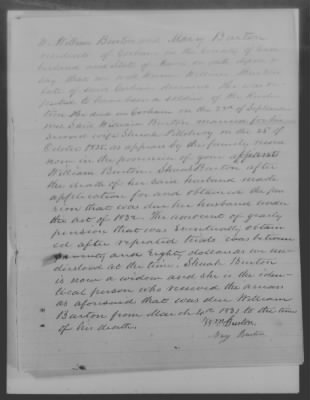 We William Burton and Mary Burton
residents of Gorham in the County of Cum
berland and State of Maine on oath depose &
say that we well knew William
late of said Gorham deceased who was
to have been a soldier of the Revolu
tion He died in Gorham on the 23d of September
Said William Burton married for his
second wife Shuah Pillsbury on the 25 of
October 1826 as appears by the family record
now in the possession of your affiants
William Burton. Shuah Burton after
the death of her said husband made
application for and obtained the pen
sion that was due her husband under
the act of 1832. The amount of yearly
pension that was eventually obtain
ed after repeated trials was between
seventy and Eighty dollars as we un
derstood at the time. Shuah Burton
is now a widow and she is the iden-
tical person who received the arrears
as aforesaid that was due William
Burton from March 4th 1831 to the time
of his death.
Wm Burton
Burton